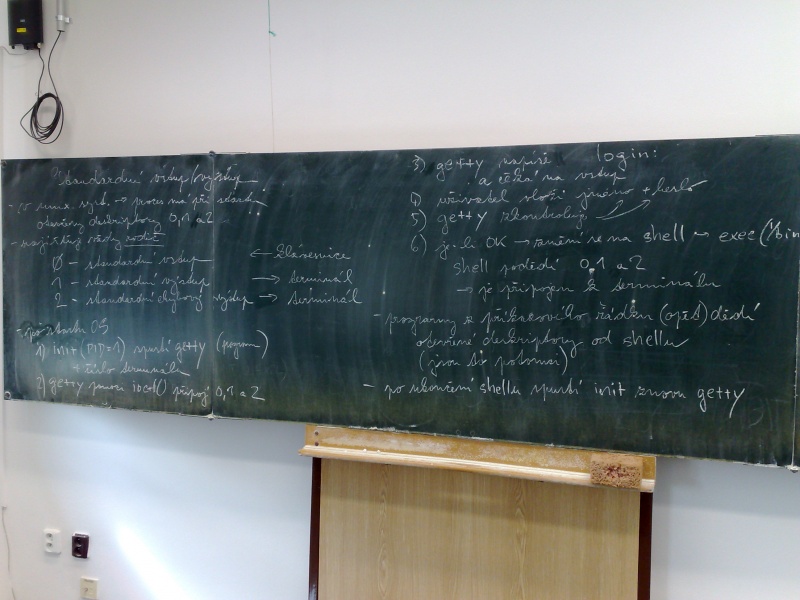 Standardní vstup/výstup
- po unix. syst. → proces má při startu
otevřeny deskriptory 0,1 a 2
- zajišťuje vždy rodič
0 - standardní vstup ← klávesnice
1 - standardní výstup → terminál
2 - standardní chybový výstup → terminál
- po startu OS
1) init (PID=1) spustí getty (program)
+ číslo terminálu
2) getty pomocí ioctl() připojí 0,1 a 2
3) getty napíše login:
a čeká na vstup
4) uživatel vloží jméno + heslo
5) getty zkontroluje
6) je-li OK → změní se na shell → exec("/bin
shell podědí 0,1 a 2
→ je připojen k terminálu
- programy z příkazového řádku (opět) dědí
otevřené deskriptory od shellu
(jsou to potomci)
- po skončení shellu spustí init znovu getty